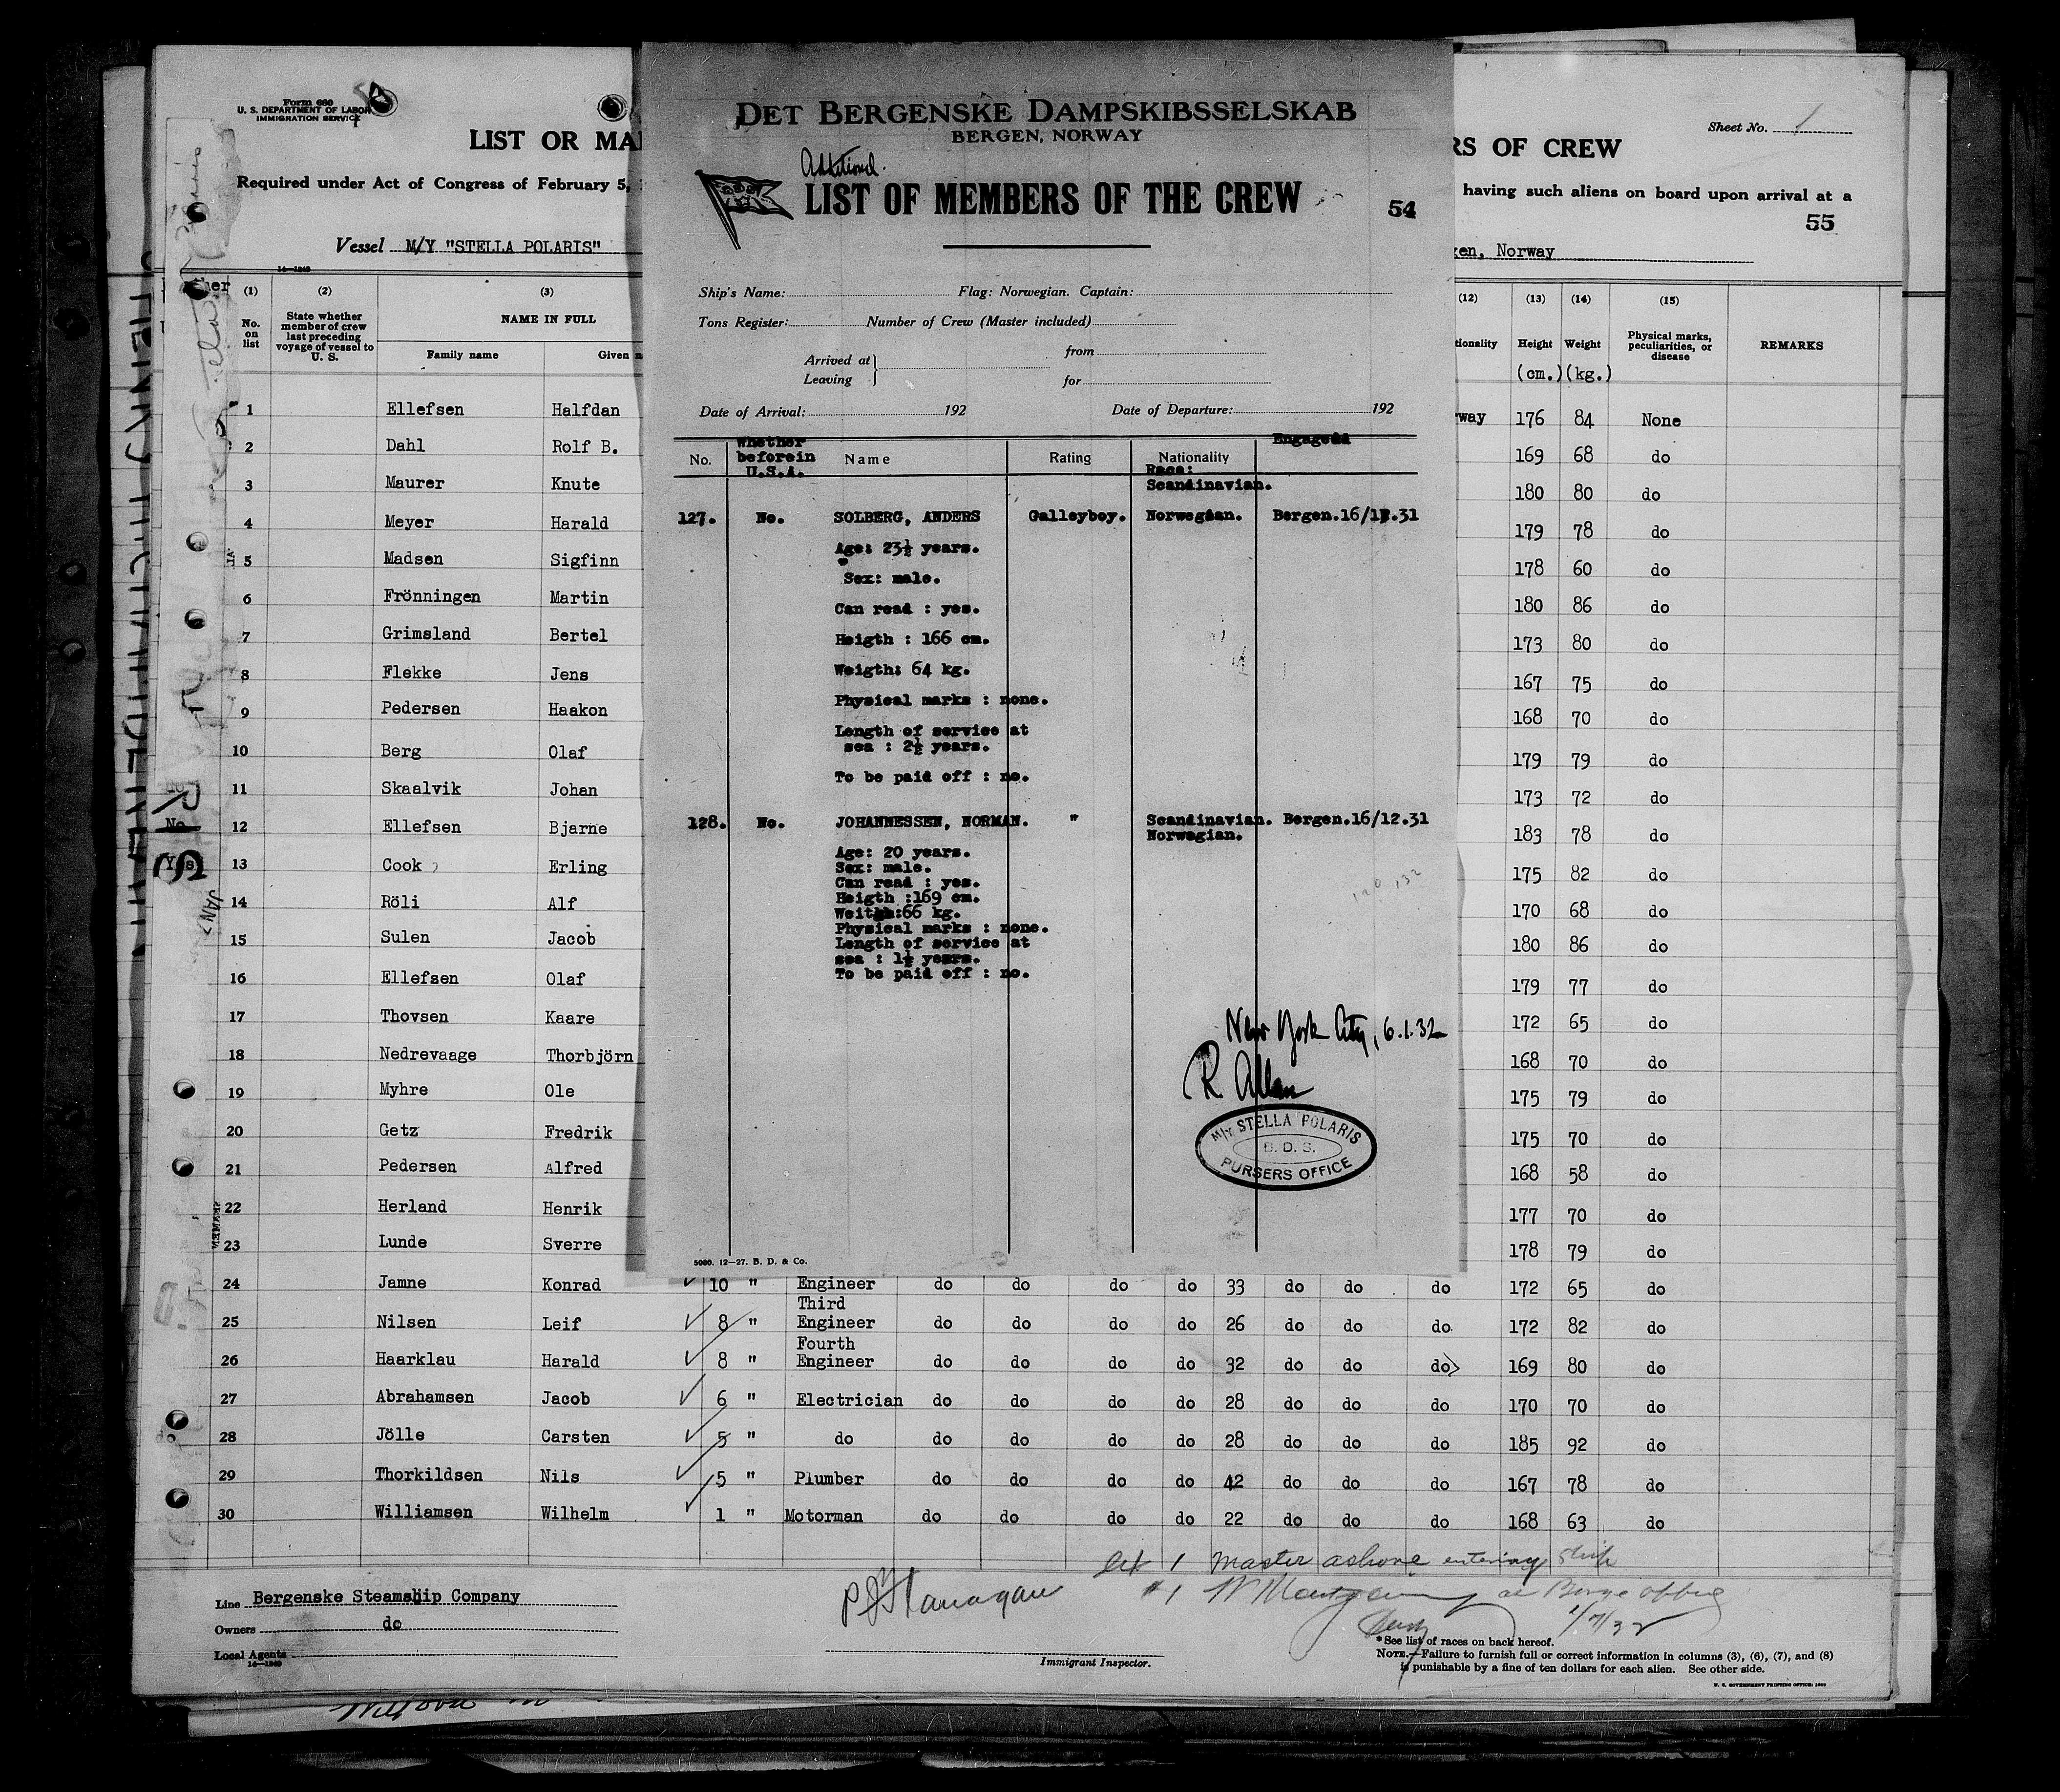 Form 680
U. S. DEPARTMENT OF LABOR
IMMIGRATION SERVICE
LIST OR MA
Required under Act of Congress of February 5,
Vessel M/Y "STELLA POLARIS"
14—1240
(1) (2) (3)
No. on list
State whether member of crew last preceding voyage of vessel to U. S.
NAME IN FULL
Family name Given
1 Ellefsen Halfdan
2 Dahl Rolf B.
3 Maurer Knute
4 Meyer Harald
5 Madsen Sigfinn
6 Frönningen Martin
7 Grimsland Bertel
8 Flekke Jens
9 Pedersen Haakon
10 Berg Olaf
11 Skaalvik Johan
12 Ellefsen Bjarne
13 Cook Erling
14 Röli Alf
15 Sulen Jacob
16 Ellefsen Olaf
17 Thovsen Kaare
18 Nedrevaage Thorbjörn
19 Myhre Ole
20 Getz Fredrik
21 Pedersen Alfred
22 Herland Henrik
23 Lunde Sverre
DET BERGENSKE DAMPSKIBSSELSKAB
BERGEN, NORWAY
Additional.
LIST OF MEMBERS OF THE CREW
54
Ship's Name: Flag: Norwegian. Captain:
Tons Register: Number of Crew (Master included)
Arrived at from
Leaving for
Date of Arrival: 192 Date of Departure: 192
No. Whether beforein U.S.A. Name Rating Nationality Engaged
Race:
Scandinavian.
127. No. SOLBERG, ANDERS Galleyboy. Norwegian. Bergen.16/12.31
Age: 23½ years.
Sex: male.
Can read : yes.
Heigth : 166 cm.
Weigth: 64 kg.
Physical marks : none.
Length of service at
sea : 2½ years.
To be paid off : no.
128. No. JOHANNESSEN, NORMAN. " Scandinavian. Bergen.16/12.31
Norwegian.
Age: 20 years.
Sex: male.
Can read : yes.
Heigth :169 cm.
Weith:66 kg.
Physical marks : none.
Length of service at
sea : 1½ years.
To be paid off : no.
New York City, 6.1.32
R. Allan
M/Y STELLA POLARIS
B. D. S.
PURSERS OFFICE
5000. 12—27. B. D. & Co.
Sheet No. 1
RS OF CREW
having such aliens on board upon arrival at a
55
gen, Norway
(12) (13) (14) (15)
tionality Height Weight Physical marks, peculiarities, or disease REMARKS
(cm.) (kg.)
rway 176 84 None
169 68 do
180 80 do
179 78 do
178 60 do
180 86 do
173 80 do
167 75 do
168 70 do
179 79 do
173 72 do
183 78 do
175 82 do
170 68 do
180 86 do
179 77 do
172 65 do
168 70 do
175 79 do
175 70 do
168 58 do
177 70 do
178 79 do
24 Jamne Konrad 10 " Engineer do do do do 33 do do do 172 65 do
25 Nilsen Leif 8 " Third Engineer do do do do 26 do do do 172 82 do
26 Haarklau Harald 8 " Fourth Engineer do do do do 32 do do do 169 80 do
27 Abrahamsen Jacob 6 " Electrician do do do do 28 do do do 170 70 do
28 Jölle Carsten 5 " do do do do do 28 do do do 185 92 do
29 Thorkildsen Nils 5 " Plumber do do do do 42 do do do 167 78 do
30 Williamsen Wilhelm 1 " Motorman do do do do 22 do do do 168 63 do
1 Master ashore entering ship
#1
1/7/32
Line Bergenske Steamship Company
Owners do
Local Agents
14—1240
P J Flanagan
Immigrant Inspector.
*See list of races on back hereof.
NOTE.—Failure to furnish full or correct information in columns (3), (6), (7), and (8)
is punishable by a fine of ten dollars for each alien. See other side.
U. S. GOVERNMENT PRINTING OFFICE: 1929